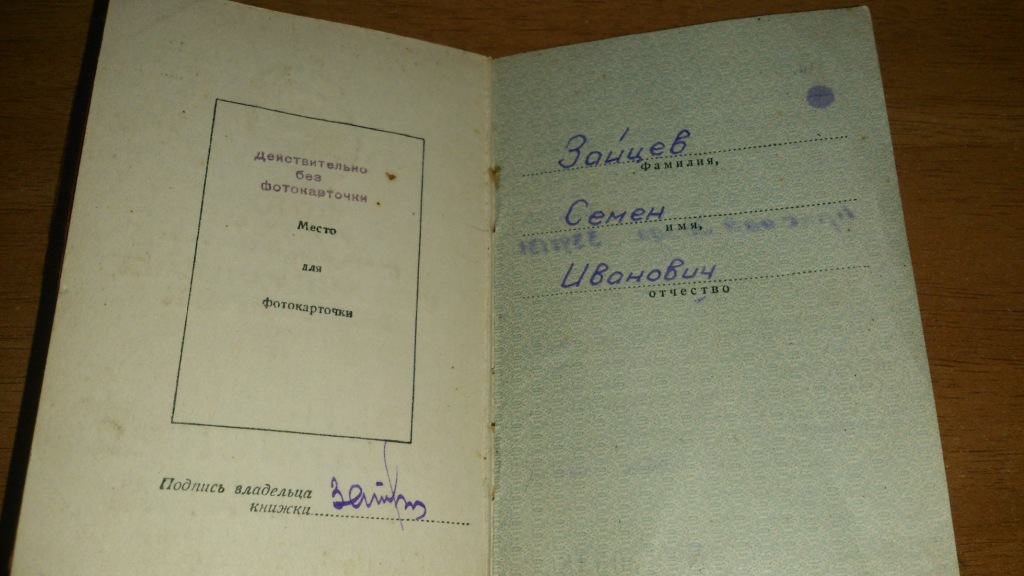 Действительно
без
фотокарточки
Место
для
фотокарточки
Подпись владельца
книжки
Зайцев
фамилия,
Семен
имя,
Иванович
отчество